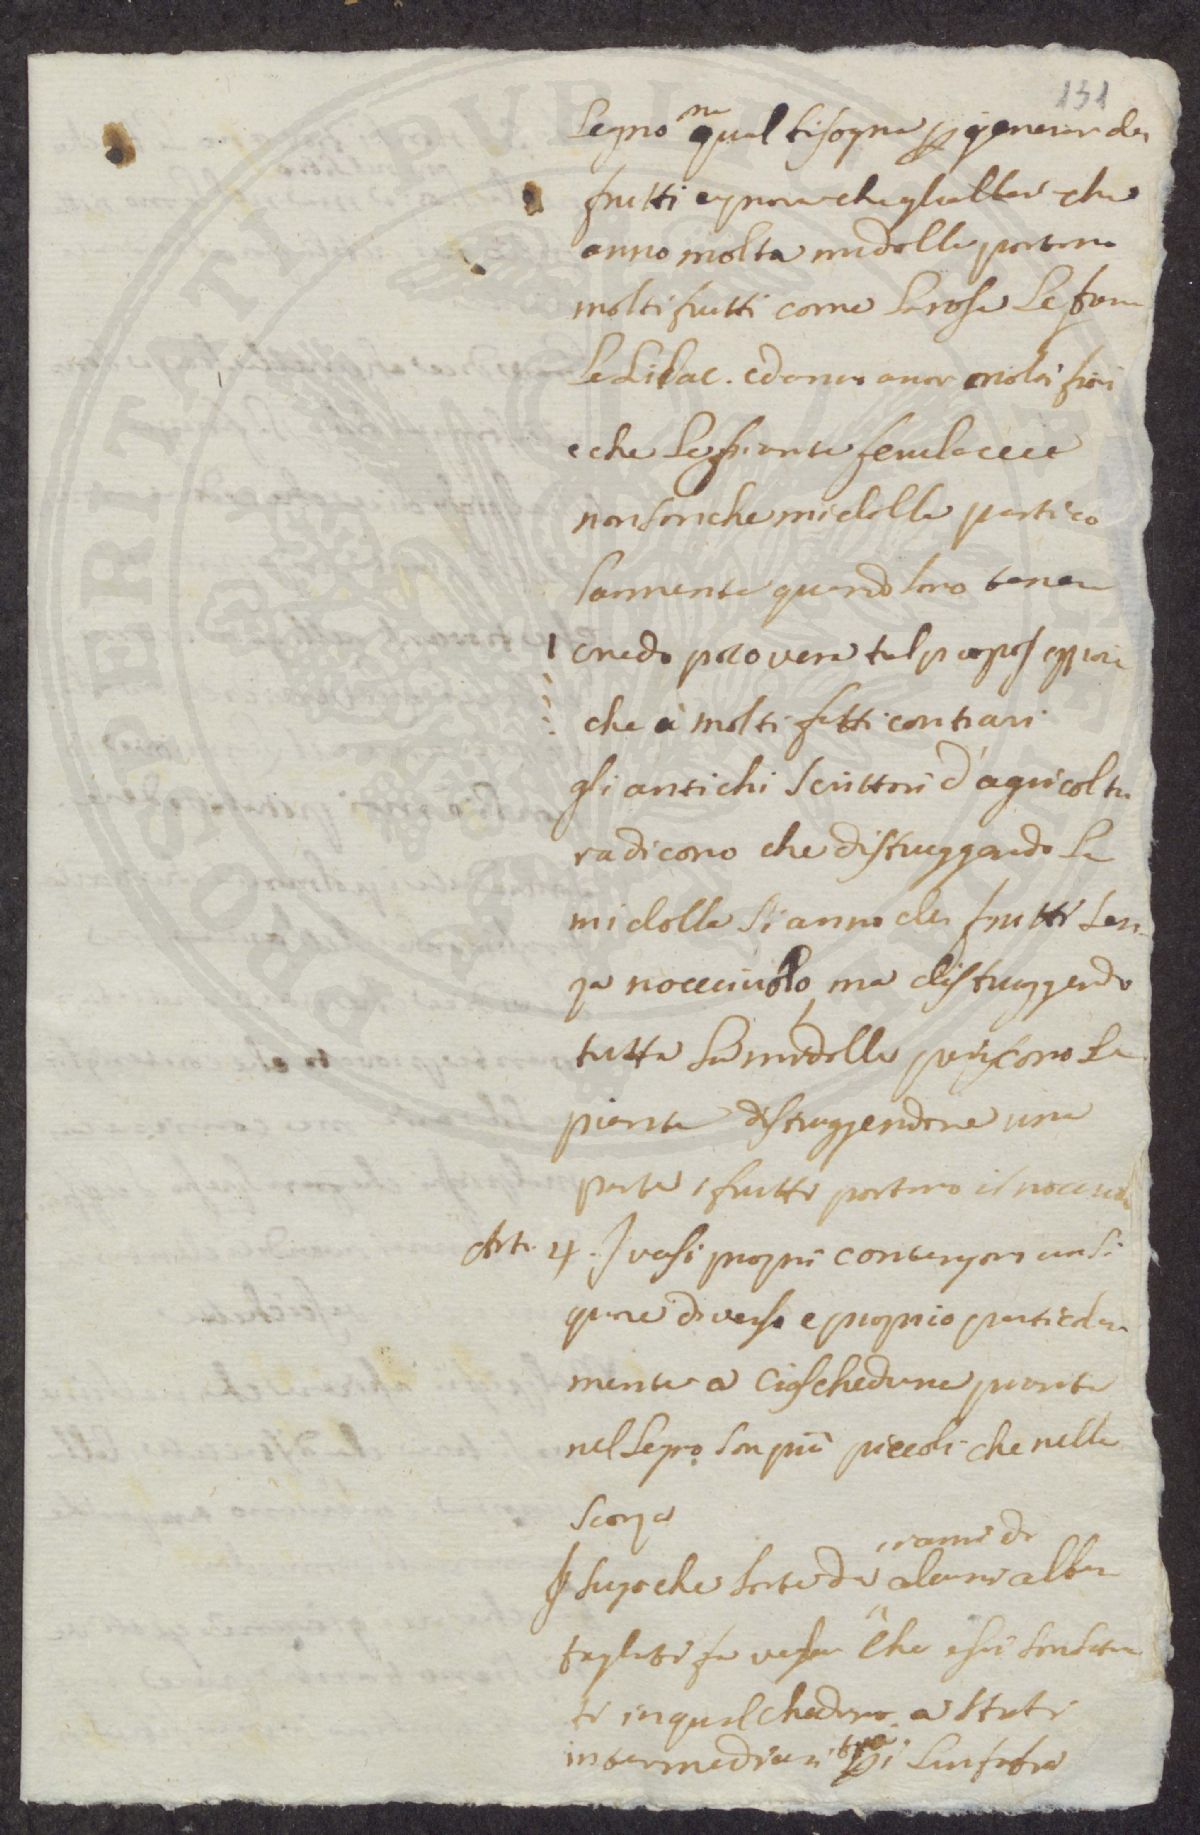 131
Legno ne qual bisogna p generar de
frutti e prova che gl'alberi che
anno molta midolla portano
molti frutti come la rosa le
Le Lilac. e danno ancor molti fiori
e che le piante ferulacee
non son che midolla partico
larmente quando sono tenere
credo poco vera tal propos
che à molti fatti contrari
gli antichi scrittori d'agricoltu
ra dicono che distruggendo la
midolla si anno de frutti sen
za nocciuolo, ma distruggendo
tutta la midolla periscono le
piante distruggendone una
parte i frutti portano il nocciuolo
Art. 4. I vasi proprii contengono un li
quore diverso e proprio particolar
mente a ciascheduna pianta
nel legno son più piccoli che nella
scorza
i rami di
Il sugo che sorte da alcuni alberi
tagliati fa veder che essi son situa
ti in qualcheduno a strati
intermediari tra i linfatici